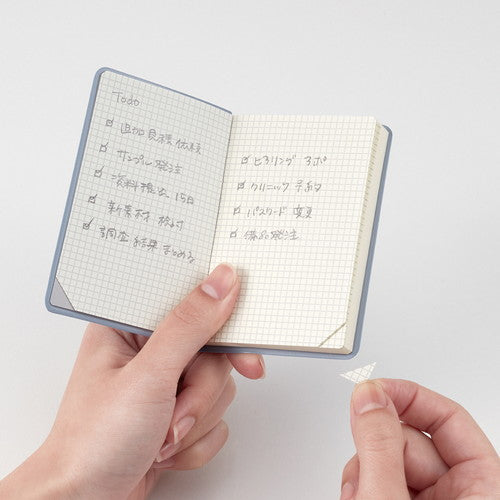 Todo
追加見積依頼
サンプル発注
資料提出 15日
新素材 検討
調査結果まとめる
ヒアリング メモ
クリニック 予約
パスワード 変更
備品発注